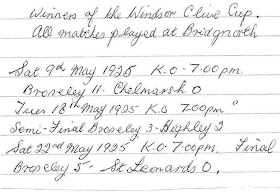 Winners of the Windsor Clive Cup.
All matches played at Bridgnorth
Sat 9th May 1925 K.O - 7.00pm.
Broseley 11. Chelmarsh 0
Tues 18th May 1925 K.O 7.00pm "
Semi-Final Broseley 3 - Highley 2
Sat 22nd May 1925 K.O 7.00pm. Final
Broseley 5 - St. Leonards 0.